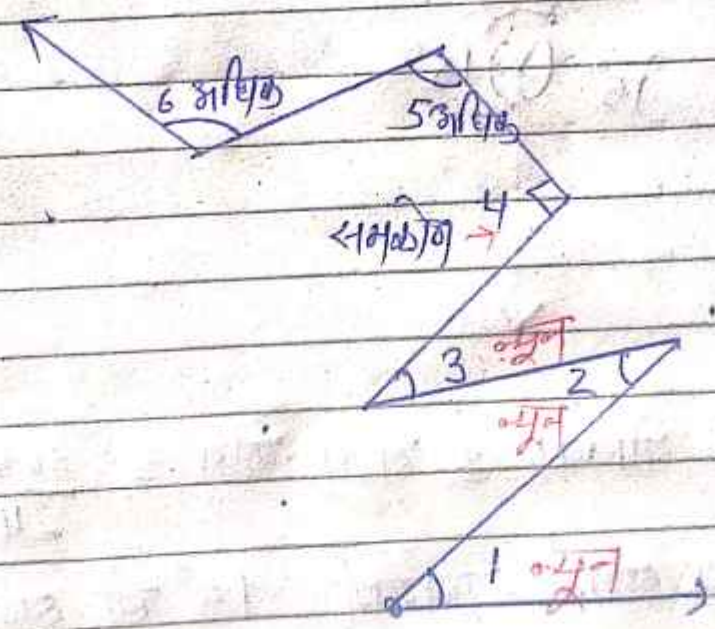 6 अधिक
5 अधिक
4
समकोण →
3 न्यून
2
न्यून
1 न्यून